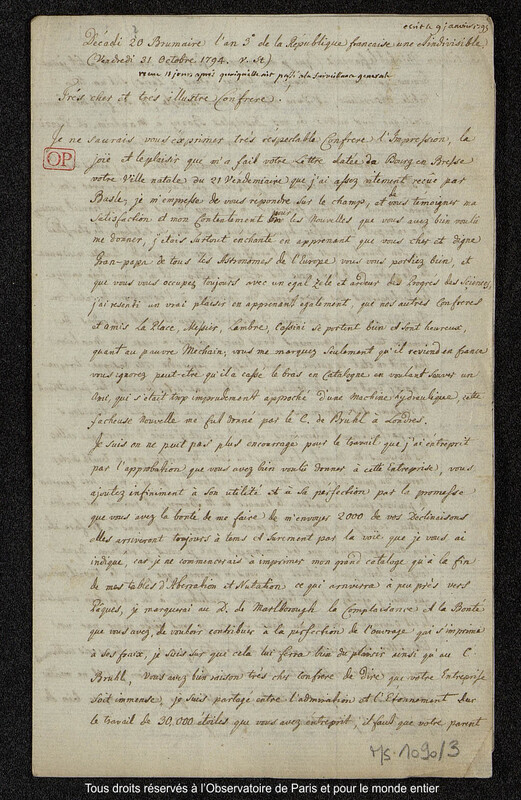 ecrit le 9 janvier 1795
Décadi 20 Brumaire l'an 3e de la République française une & Indivisible
(Vendredi 31 Octobre 1794. v. St)
recue 11 jours après quoiqu'elle ait passé à la surveillance generale
Très cher et tres illustre Confrere.
Je ne saurais vous exprimer très réspectable Confrere l'Impression, la
OP
joie et le plaisir que m'a fait votre Lettre datée de Bourg en Bresse
votre Ville natale du 21 Vendemiaire que j'ai assez vitement reçue par
Basle, je m'empresse de vous repondre sur le champ, et de vous témoigner ma
Satisfaction et mon Contentement pour les Nouvelles que vous avez bien voulu
me donner, j'étois surtout enchanté en apprenant que vous cher et digne
Gran-papa de tous les Astronomes de l'Europe vous vous portiez bien, et
que vous vous occupez toujours avec un egal Zele et ardeur des Progres des Sciences,
j'ai resenti un vrai plaisir en apprenant également, que nos autres Confreres
et amis la Place, Messier, Lambre, Cassini se portent bien et sont heureux,
quant au pauvre Mechain, vous me marquez seulement qu'il reviend en france
vous ignorez peut-être qu'il a cassé le bras en Catalogne en voulant sauver un
Ami, qui s'étoit trop imprudemment approché d'une Machine hydraulique, cette
facheuse nouvelle me fut donné par le C. de Brühl à Londres.
Je suis on ne peut pas plus encouragé pour le travail que j'ai entreprit
par l'approbation que vous avez bien voulu donner à cette Entreprise, vous
ajoutez infiniment à son utilité et à sa perfection par la promesse
que vous avez la bonté de me faire de m'envoyer 2000 de vos Declinaisons
elles arriveront toujours à tems et surement par la voie que je vous ai
indiqué, car je ne commencerais à imprimer mon grand catalogue qu'à la fin
de mes tables d'Aberration et Nutation ce qui arrivera à peu près vers
Pâques, je marquerai au D. de Marlborough la Complaisance et la Bonté
que vous avez, de vouloir contribuer à la pérfection de l'ouvrage qui s'imprime
à ses fraix, je suis sur que cela lui ferra bien du plaisir ainsi qu'au C
Brühl, Vous avez bien raison très cher confrere de Dire que votre Entreprise
soit immense, je suis partagé entre l'admiration et l'Etonnement sur
le travail de 30,000 étoiles que vous avez entreprit, il faut que votre parent
Ms. 1090/3
Tous droits réservés à l'Observatoire de Paris et pour le monde entier